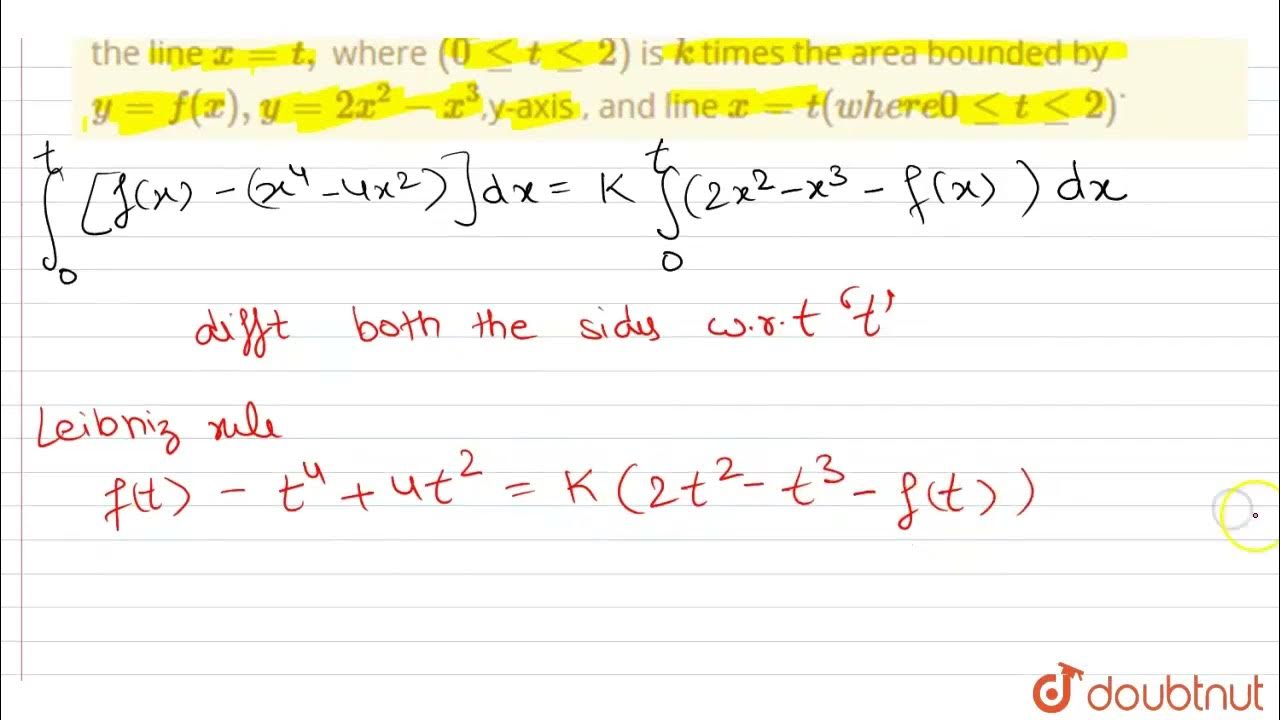 the line x = t, where (0 ≤ t ≤ 2) is k times the area bounded by
y = f(x), y = 2x² − x³,y-axis , and line x = t(where0 ≤ t ≤ 2)·
∫₀ᵗ [f(x) - (x⁴ - 4x²)] dx = K ∫₀ᵗ (2x² - x³ - f(x)) dx
difft both the sides w.r.t 't'
Leibniz rule
f(t) - t⁴ + 4t² = K (2t² - t³ - f(t))
doubtnut